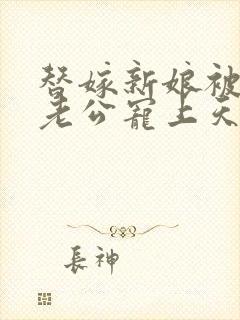 替嫁新娘被
老公寵上天
長神